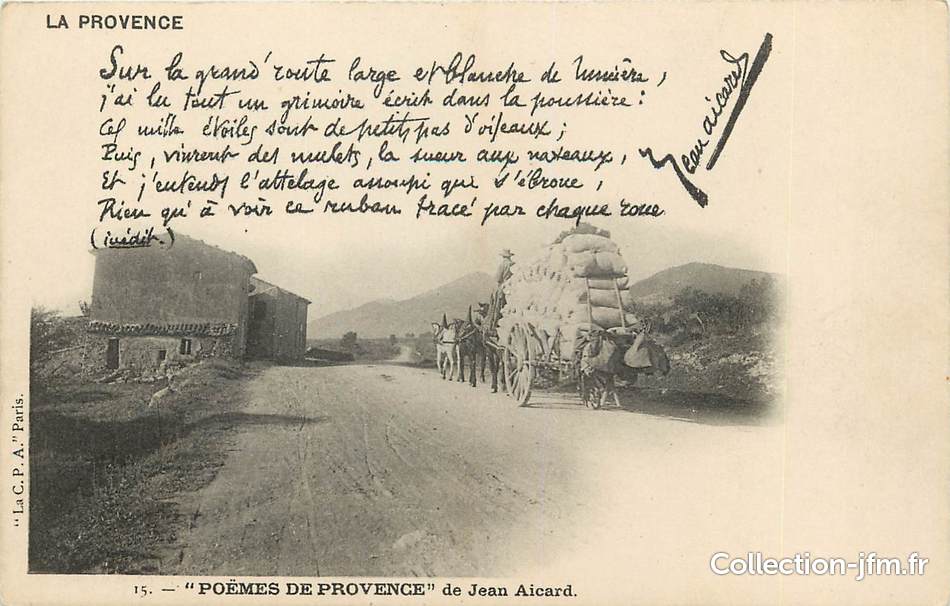 LA PROVENCE
Sur la grand'route large et blanche de lumière,
j'ai lu tout un grimoire écrit dans la poussière :
Ces mille étoiles sont de petits pas d'oiseaux ;
Puis, vinrent des mulets, la sueur aux naseaux,
Et j'entends l'attelage assoupi qui s'ébroue,
Rien qu'à voir ce ruban tracé par chaque roue
(inédit.)
Jean aicard
"La C. P. A." Paris.
15. — "POËMES DE PROVENCE" de Jean Aicard.
Collection-jfm.fr